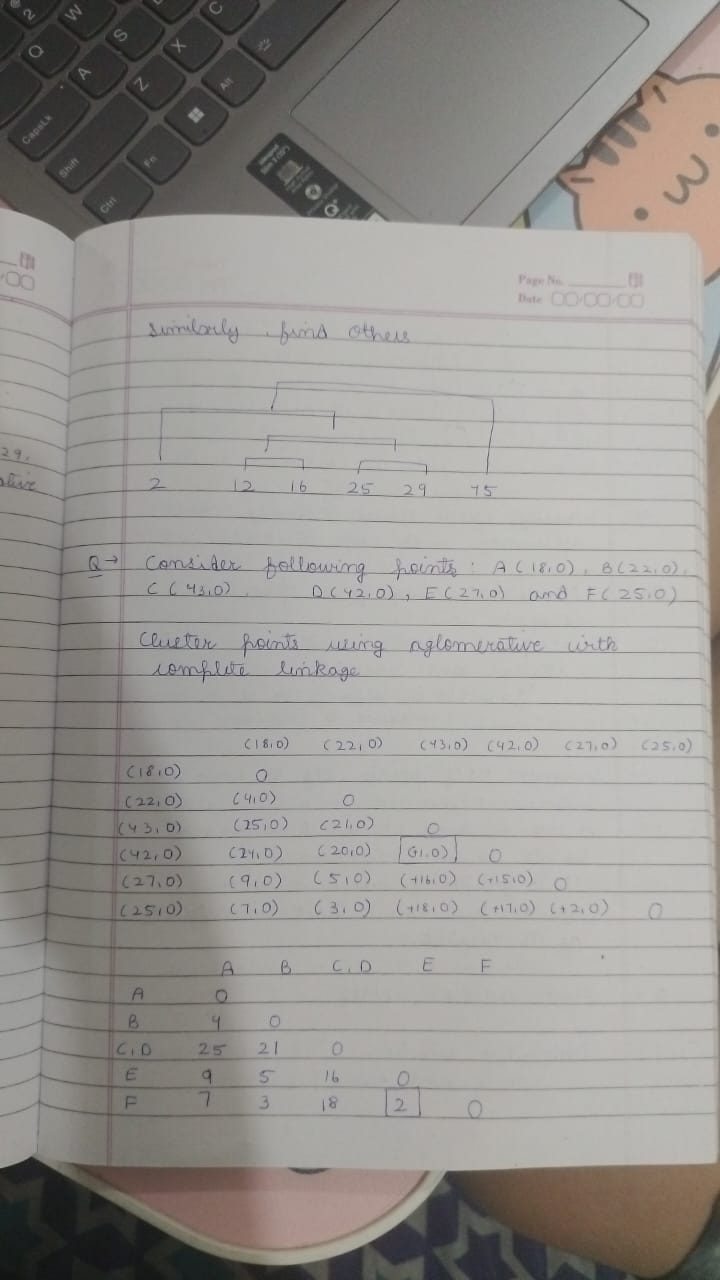 2
W
Q
S
C
A
X
CapsLk
Z
Alt
Shift
Fn
Ctrl
Page No.
Date
similarly, find others
29.
2 12 16 25 29 45
Q→ Consider following points: A(18,0), B(22,0),
C(43,0), D(42,0), E(27,0) and F(25,0)
Cluster points using aglomerative with
complete linkage
(18,0) (22,0) (43,0) (42,0) (27,0) (25,0)
(18,0) 0
(22,0) (4,0) 0
(43,0) (25,0) (21,0) 0
(42,0) (24,0) (20,0) (1,0) 0
(27,0) (9,0) (5,0) (+16,0) (+15,0) 0
(25,0) (7,0) (3,0) (+18,0) (+17,0) (+2,0) 0
A B C,D E F
A 0
B 4 0
C,D 25 21 0
E 9 5 16 0
F 7 3 18 2 0